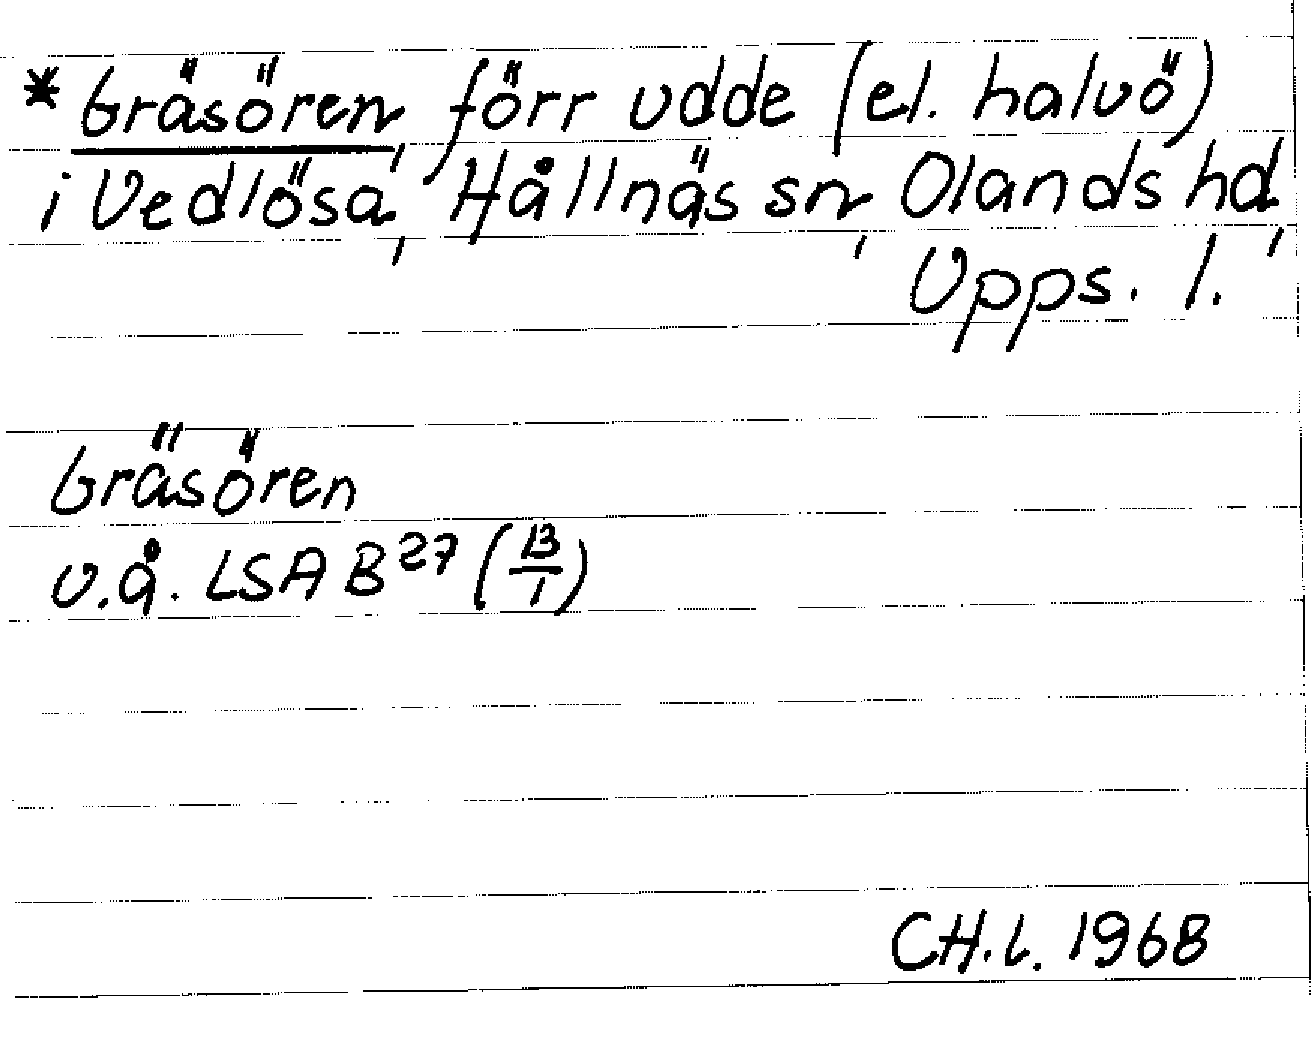 * Gräsören, förr udde (el. halvö)
i Vedlösa, Hållnäs sn, Olands hd,
Upps. l.
Gräsören
u.å. LSA B27 (13/1)
CH.L. 1968